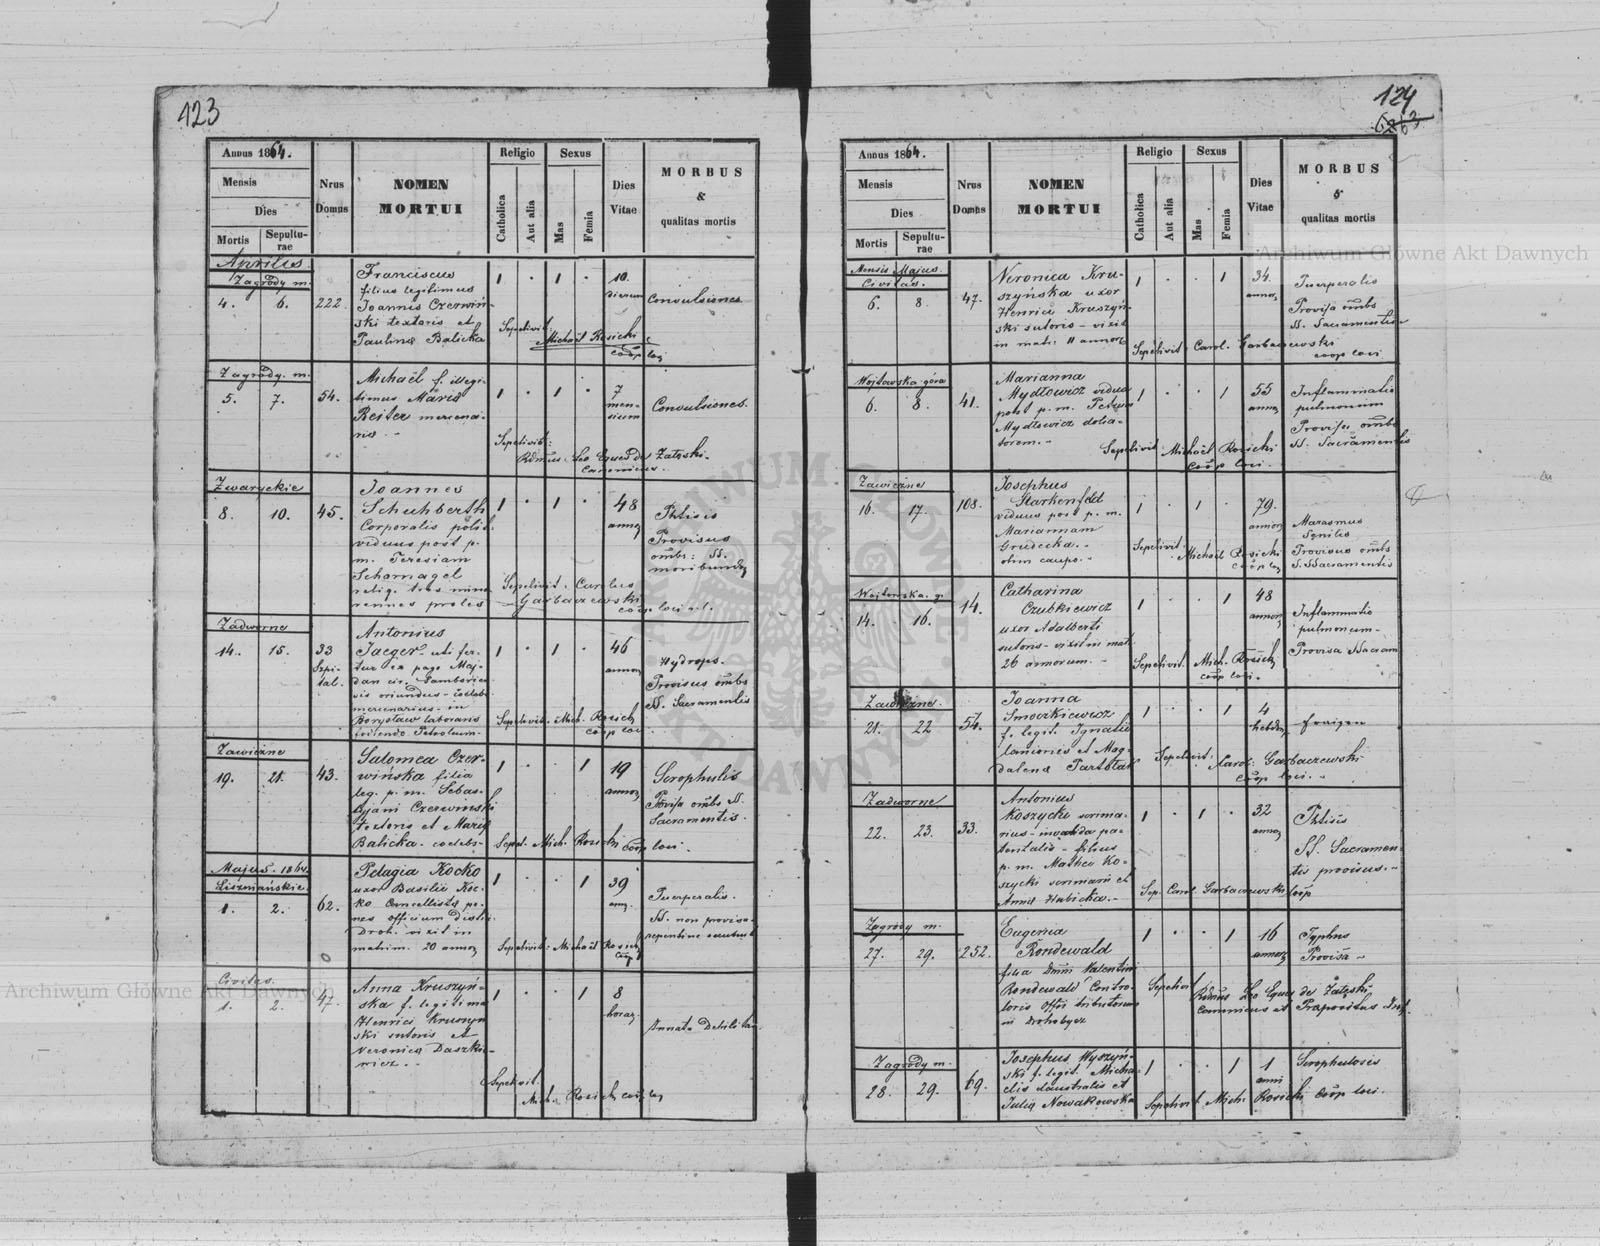 123
Annus 1864.
Mensis
Dies
Mortis
Sepulturae
Nrus Domus
NOMEN MORTUI
Religio
Catholica
Aut alia
Sexus
Mas
Femia
Dies Vitae
MORBUS
&
qualitas mortis
Aprilis
Zagrody m.
4. 6. 222.
Franciscus
filius legitimus
Joannis Czerwiń-
ski textoris et
Paulina Balicka
1 . 1 .
10.
dierum
Convulsiones
Sepelivit:
Michaël Rosicki
coop loc
Zagrody. m.
5. 7. 54.
Michaël f. illegi-
timus Maria
Reiter mercena-
ria. -
1 . 1 .
7
men-
sium
Convulsiones.
Sepelivit:
Rdmus Leo Eques de Załęski.
Canonicus.
Zwaryckie
8. 10. 45.
Joannes
Schuhberth
Corporalis polit.
viduus post p.
m. Teresiam
Scharnagel
reliq. tres mino
rennes proles
1 . 1 .
48
annor
Phtisis
Provisus
ombs: SS.
moribund
Sepelivit. Carolus
Garbaczewski
coop loci
Zadworne
14. 15. 33
Szpi-
tal.
Antonius
Jaeger uti fer-
tur ex pago Maj-
dan cir. Samboricen
sis oriundus - coelebs
mercenarius - in
Borysław laborans
fodiendo Petroleum.
1 . 1 .
46
annor
Hydrops.
Provisus ombs
SS. Sacramentis
Sepelivit. Mich. Rosicki
coop loci
Zawieżne
19. 21. 43.
Salomea Czer-
wińska filia
leg. p. m. Sebas-
tyjani Czerwiński
textoris et Maria
Balicka. coelebs-
1 . . 1
19
annor
Scrophulis
Provisa ombs SS.
Sacramentis.
Sepel. Mich. Rosicki coop loci.
Majus. 1864.
Liszniańskie
1. 2. 62.
Pelagia Kocko
uxor Basilii Koc-
ko Cancellista pe-
nes officium Distr.
Droh. vixit in
matrim. 20 annor
1 . . 1
39
ann.
Puerperalis.
SS. non provisa
repentine
Sepelivit: Michaël Rosicki
coop
Civitas.
1. 2. 47.
Anna Kruszyń-
ska f. legitima
Henrici Kruszyń
ski sutoris et
Veronica Daszkie-
wicz.
1 . . 1
8
horar.
Innata Debilitas.
Sepelivit.
Mich. Rosicki coop loc
124
Annus 1864.
Mensis
Dies
Mortis
Sepulturae
Nrus Domus
NOMEN MORTUI
Religio
Catholica
Aut alia
Sexus
Mas
Femia
Dies Vitae
MORBUS
&
qualitas mortis
Mensis Majus.
Civitas.
6. 8. 47.
Veronica Kru-
szyńska uxor
Henrici Kruszyń-
ski sutoris - vixit
in matr. 11 annor
1 . . 1
34.
annor
Puerperalis
Provisa ombs
SS. Sacramentis
Sepelivit: Carol. Garbaczewski
coop loci
Wojtowska góra
6. 8. 41.
Marianna
Mydłowicz vidua
post p. m. Petrum
Mydłowicz dolia-
torem.
1 . . 1
55
annor
Inflammatio
pulmonum
Provisa ombs
SS. Sacramentis
Sepelivit Michaël Rosicki
coop loci.
Zawieżne
16. 17. 108.
Josephus
Starkenfeld
viduus post p. m.
Mariannam
Grudecka.
olim caupo.
1 . 1 .
79.
annor
Marasmus
Senilis
Provisus ombs
S. Sacramentis
Sepelivit Michaël Rosicki
coop loc
Wojtowska. g.
14. 16. 14.
Catharina
Czubkiewicz
uxor Adalberti
sutoris - vixit in mat.
26 annorum.
1 . . 1
48
annor
Inflammatio
pulmonum-
Provisa SSacram
Sepelivit. Mich. Rosicki
coop loci.
Zawieżne.
21. 22 54.
Joanna
Smoczkiewicz
f. legit. Ignatii
lanionis et Mag-
dalena
1 . . 1
4
hebdom
Sepelivit: Karol: Garbaczewski
coop loci.
Zadworne
22. 23. 33.
Antonius
Koszycki scrina-
rius -
filius
p. m. Mathei Ko-
szycki scrinarii et
Anna Hubicka.
1 . 1 .
32
annor
Phtisis
SS. Sacramen-
tis provisus.
Sep. Carol Garbaczewski coop
Zagrody m.
27. 29. 252.
Eugenia
Rondewald
filia Dmni Valentini
Rondewald Contro-
loris Offii tributorum
in Drohobycz
1 . . 1
16
annor
Typhus
Provisa -
Sepelivit
Rdmus Leo Eques de Załęski
Canonicus et Praepositus
Zagrody m.
28. 29. 69.
Josephus Wyszyń-
ski f. legit. Micha-
elis claustralis et
Julia Nowakowska
1 . . 1
1
anni
Scrophulosis
Sepelivit Mich. Rosicki coop loci.
Archiwum Główne Akt Dawnych
Archiwum Główne Akt Dawnych
ARCHIWUM GŁÓWNE AKT DAWNYCH